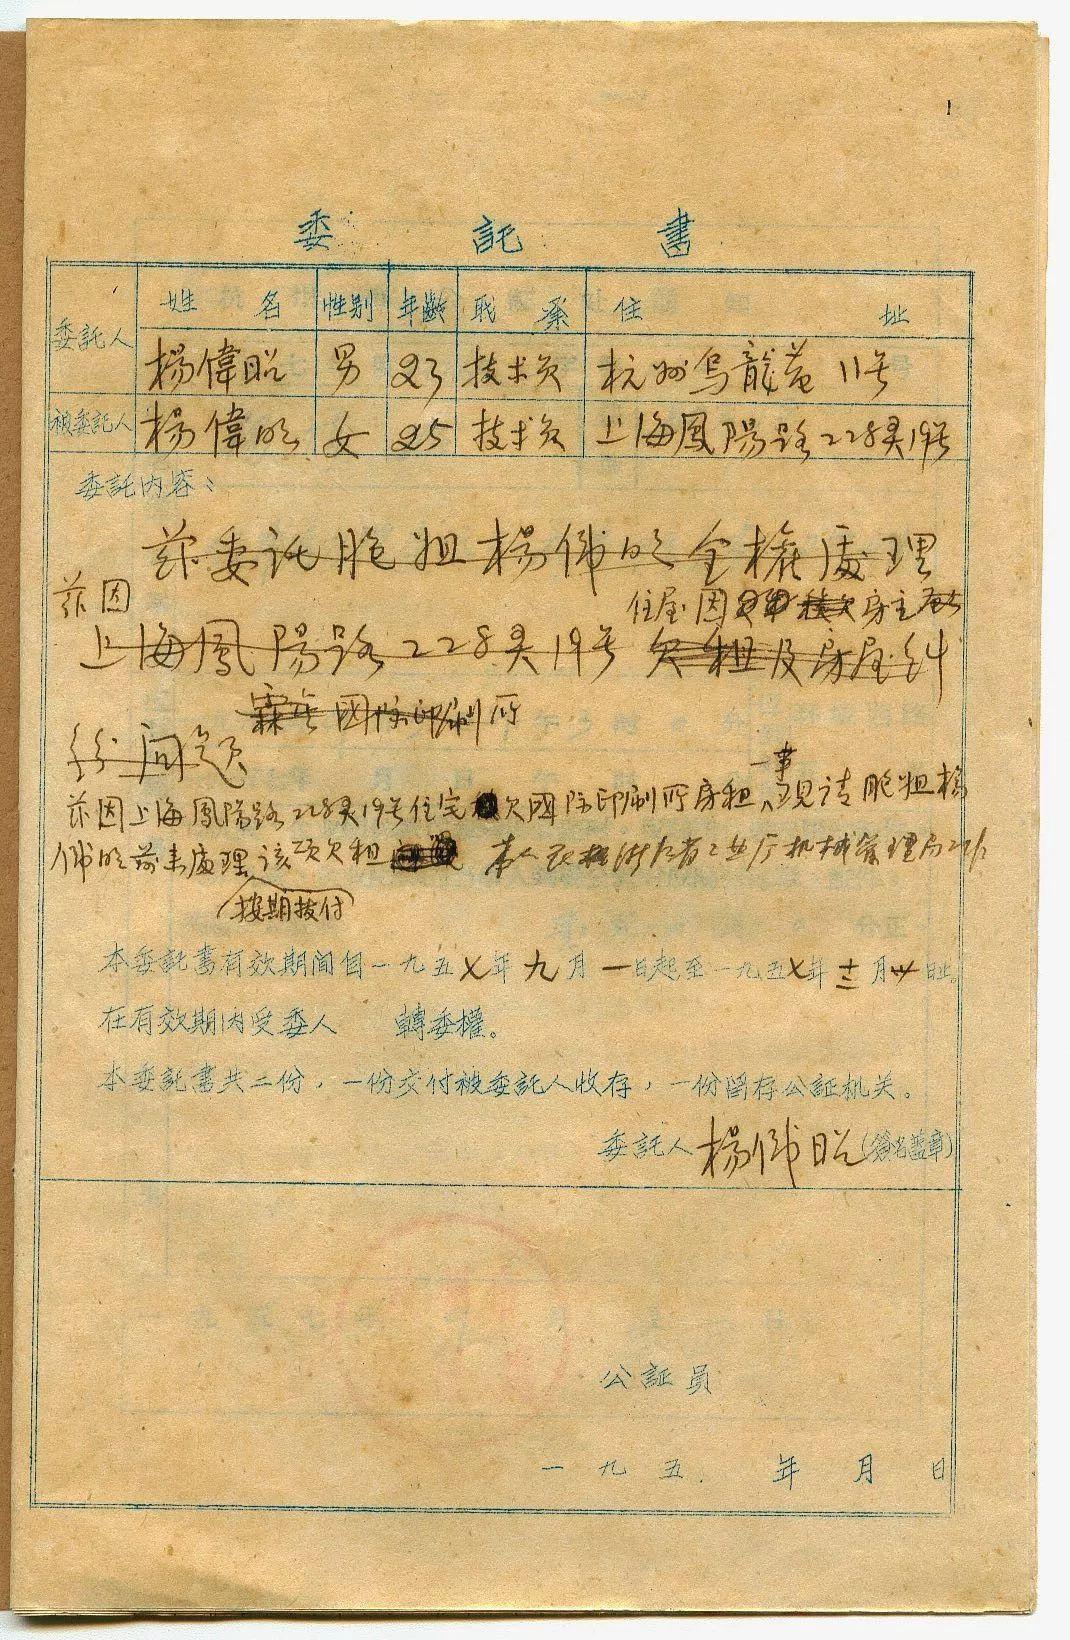 1
委託書
委託人 姓名 性別 年齡 職業 住址
楊偉昭 男 23 技术员 杭州烏龍巷 11号
被委託人 楊偉明 女 25 技术员 上海鳳陽路228弄19号
委託内容：
茲委託胞姐楊偉明全權處理
茲因 住屋因 房主
上海鳳陽路228弄19号 欠租及房屋糾
國际印刷所
紛问题
一事
茲因上海鳳陽路228弄19号住宅 欠國际印刷所房租，現请胞姐楊
偉明前来處理该项欠租 本人 浙江省工业厅机械管理局工作
按期拨付
本委託書有效期间自一九五七年九月一日起至一九五七年十二月卅日止。
在有效期内受委人 轉委權。
本委託書共二份，一份交付被委託人收存，一份留存公証机关。
委託人 楊偉昭 (簽名蓋章)
公証員
一九五 年 月 日